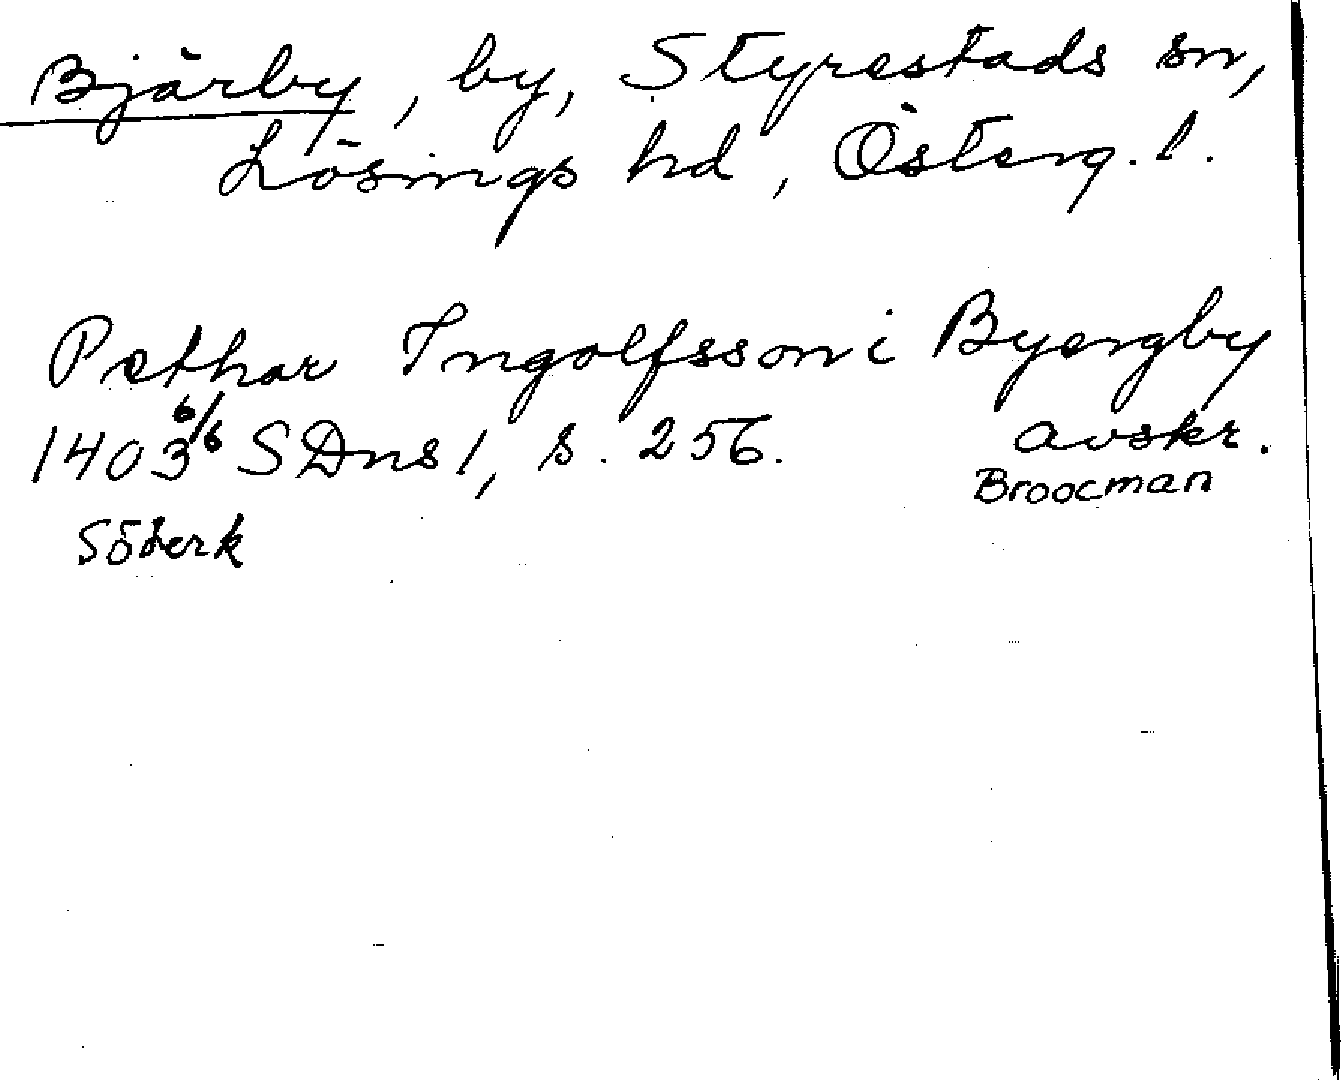 Bjärby, by, Styrestads sn,
Lösings hd, Österg. l.
Pethar Ingolfsson i Byergby
1403 6/6 SDns 1, s. 256. avskr.
Broocman
Söderk